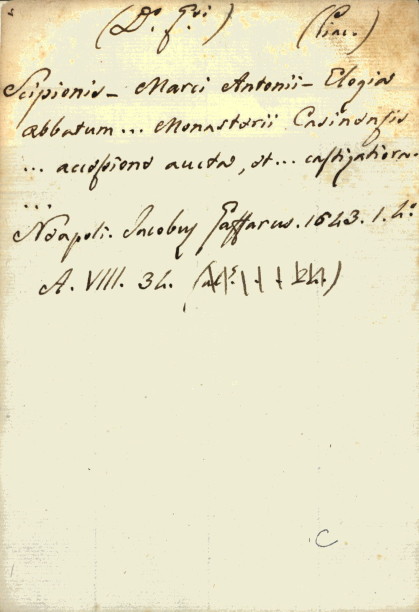 (D.s G.si) (Piac.)
Scipionis - Marci Antonii - Elogia
abbatum ... Monasterii Casinensis
... accessione aucta, et ... castigatiora.
...
Neapoli. Jacobus Gaffarus. 1643. 1. 4.o
A. VIII. 34.
C